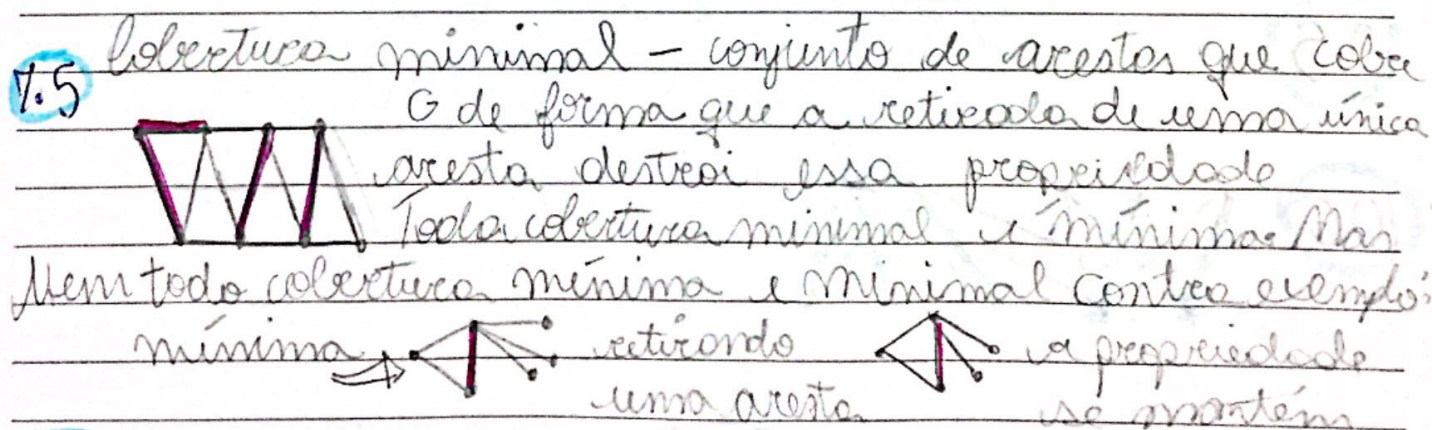 7.5 Cobertura minimal – conjunto de arestas que cobre
G de forma que a retirada de uma única
aresta destroi essa propriedade
Toda cobertura minimal é mínima. Mas
Nem toda cobertura mínima é minimal contra exemplo:
mínima retirando a propriedade
uma aresta se mantém